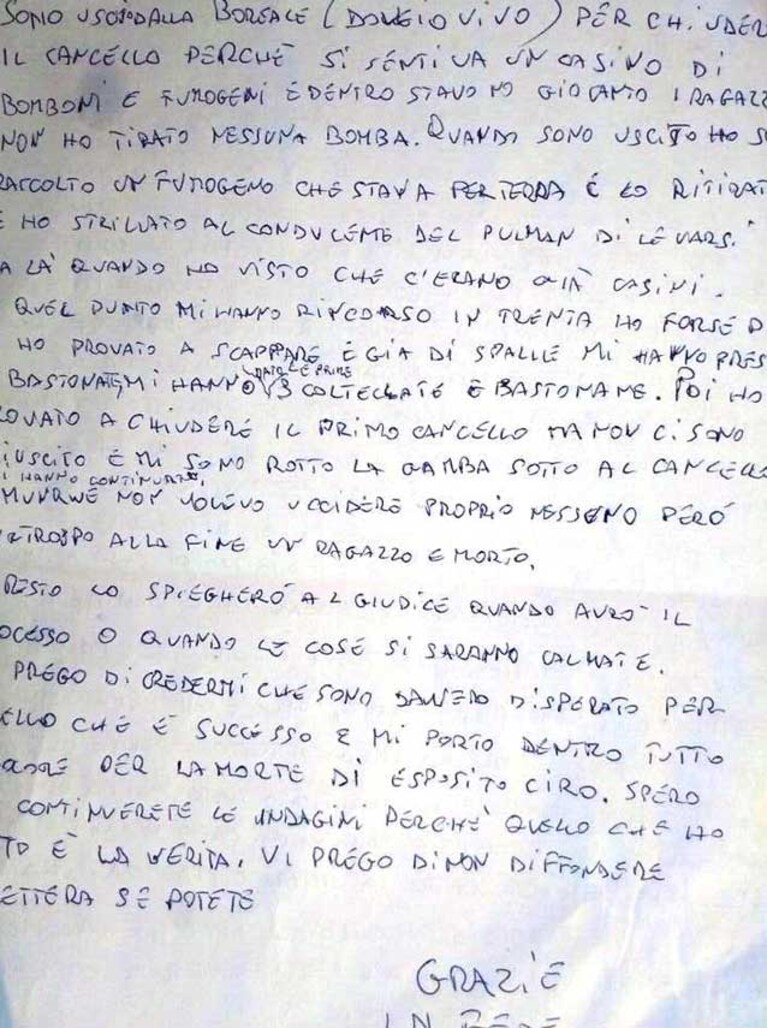 SONO USCITO DALLA BOREALE (DOVE IO VIVO) PER CHIUDER
IL CANCELLO PERCHÈ SI SENTIVA UN CASINO DI
BOMBONI E FUMOGENI E DENTRO STAVANO GIOCANTO I RAGAZZ
NON HO TIRATO NESSUNA BOMBA. QUANDO SONO USCITO HO S
RACCOLTO UN FUMOGENO CHE STAVA PER TERRA E LO RITIRAT
E HO STRILLATO AL CONDUCENTE DEL PULMAN DI LEVARSI
A LÀ QUANDO HO VISTO CHE C'ERANO GIÀ CASINI.
QUEL PUNTO MI HANNO RINCORSO IN TRENTA HO FORSE D
HO PROVATO A SCAPPARE E GIA DI SPALLE MI HANNO PRES
BASTONATE, MI HANNO DATO LE PRIME 3 COLTELLATE E BASTONAME. POI HO
ROVATO A CHIUDERE IL PRIMO CANCELLO MA NON CI SONO
IUSCITO E MI SONO ROTTO LA GAMBA SOTTO AL CANCELLO
I HANNO CONTINUATO
NON VOLEVO UCCIDERE PROPRIO NESSUNO PERÒ
ALLA FINE UN RAGAZZO E MORTO.
RESTO LO SPIEGHERÒ AL GIUDICE QUANDO AVRÒ IL
OCESSO O QUANDO LE COSE SI SARANNO CALMATE.
PREGO DI CREDERMI CHE SONO DAVVERO DISPERATO PER
ELLO CHE È SUCCESSO E MI PORTO DENTRO TUTTO
PER LA MORTE DI ESPOSITO CIRO. SPERO
CONTINUERETE LE INDAGINI PERCHE' QUELLO CHE HO
TO E' LA VERITA. VI PREGO DI NON DIFFONDERE
ETTERA SE POTETE
GRAZIE
IN FEDE